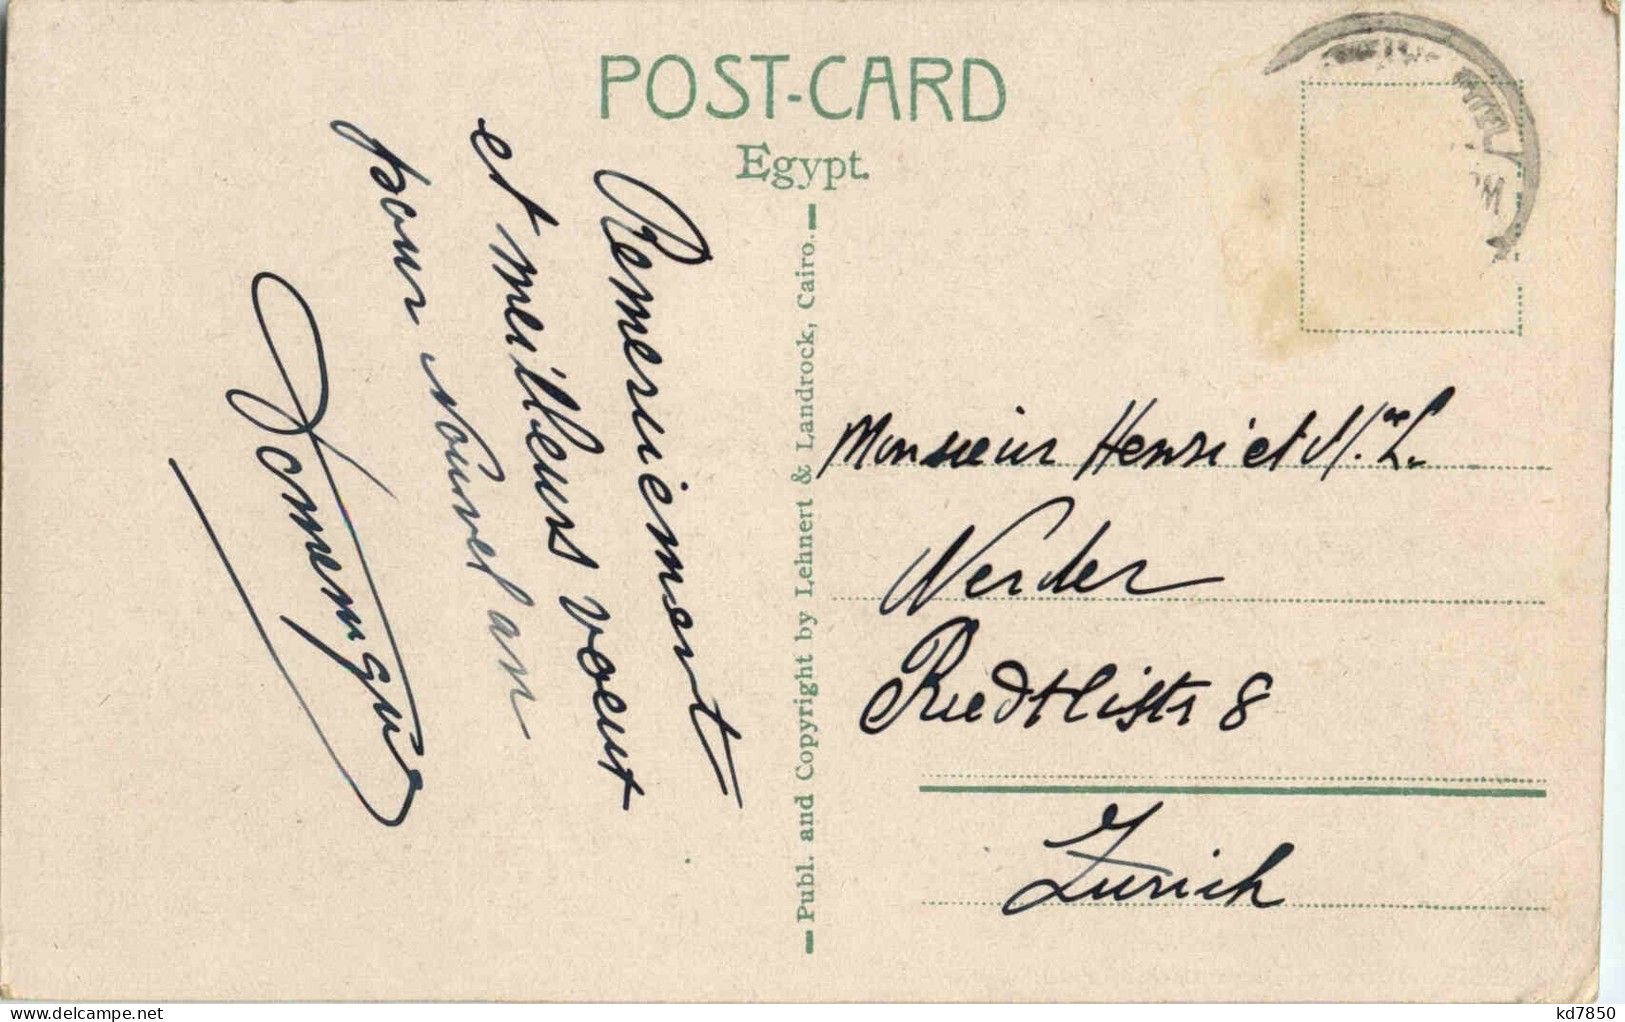 POST-CARD
Egypt.
Remerciement
et meilleurs voeux
pour Nouvel an
Publ. and Copyright by Lehnert & Landrock, Cairo.
Monsieur Henri et M. L.
Werder
Riedtlistr 8
Zurich
kd7850